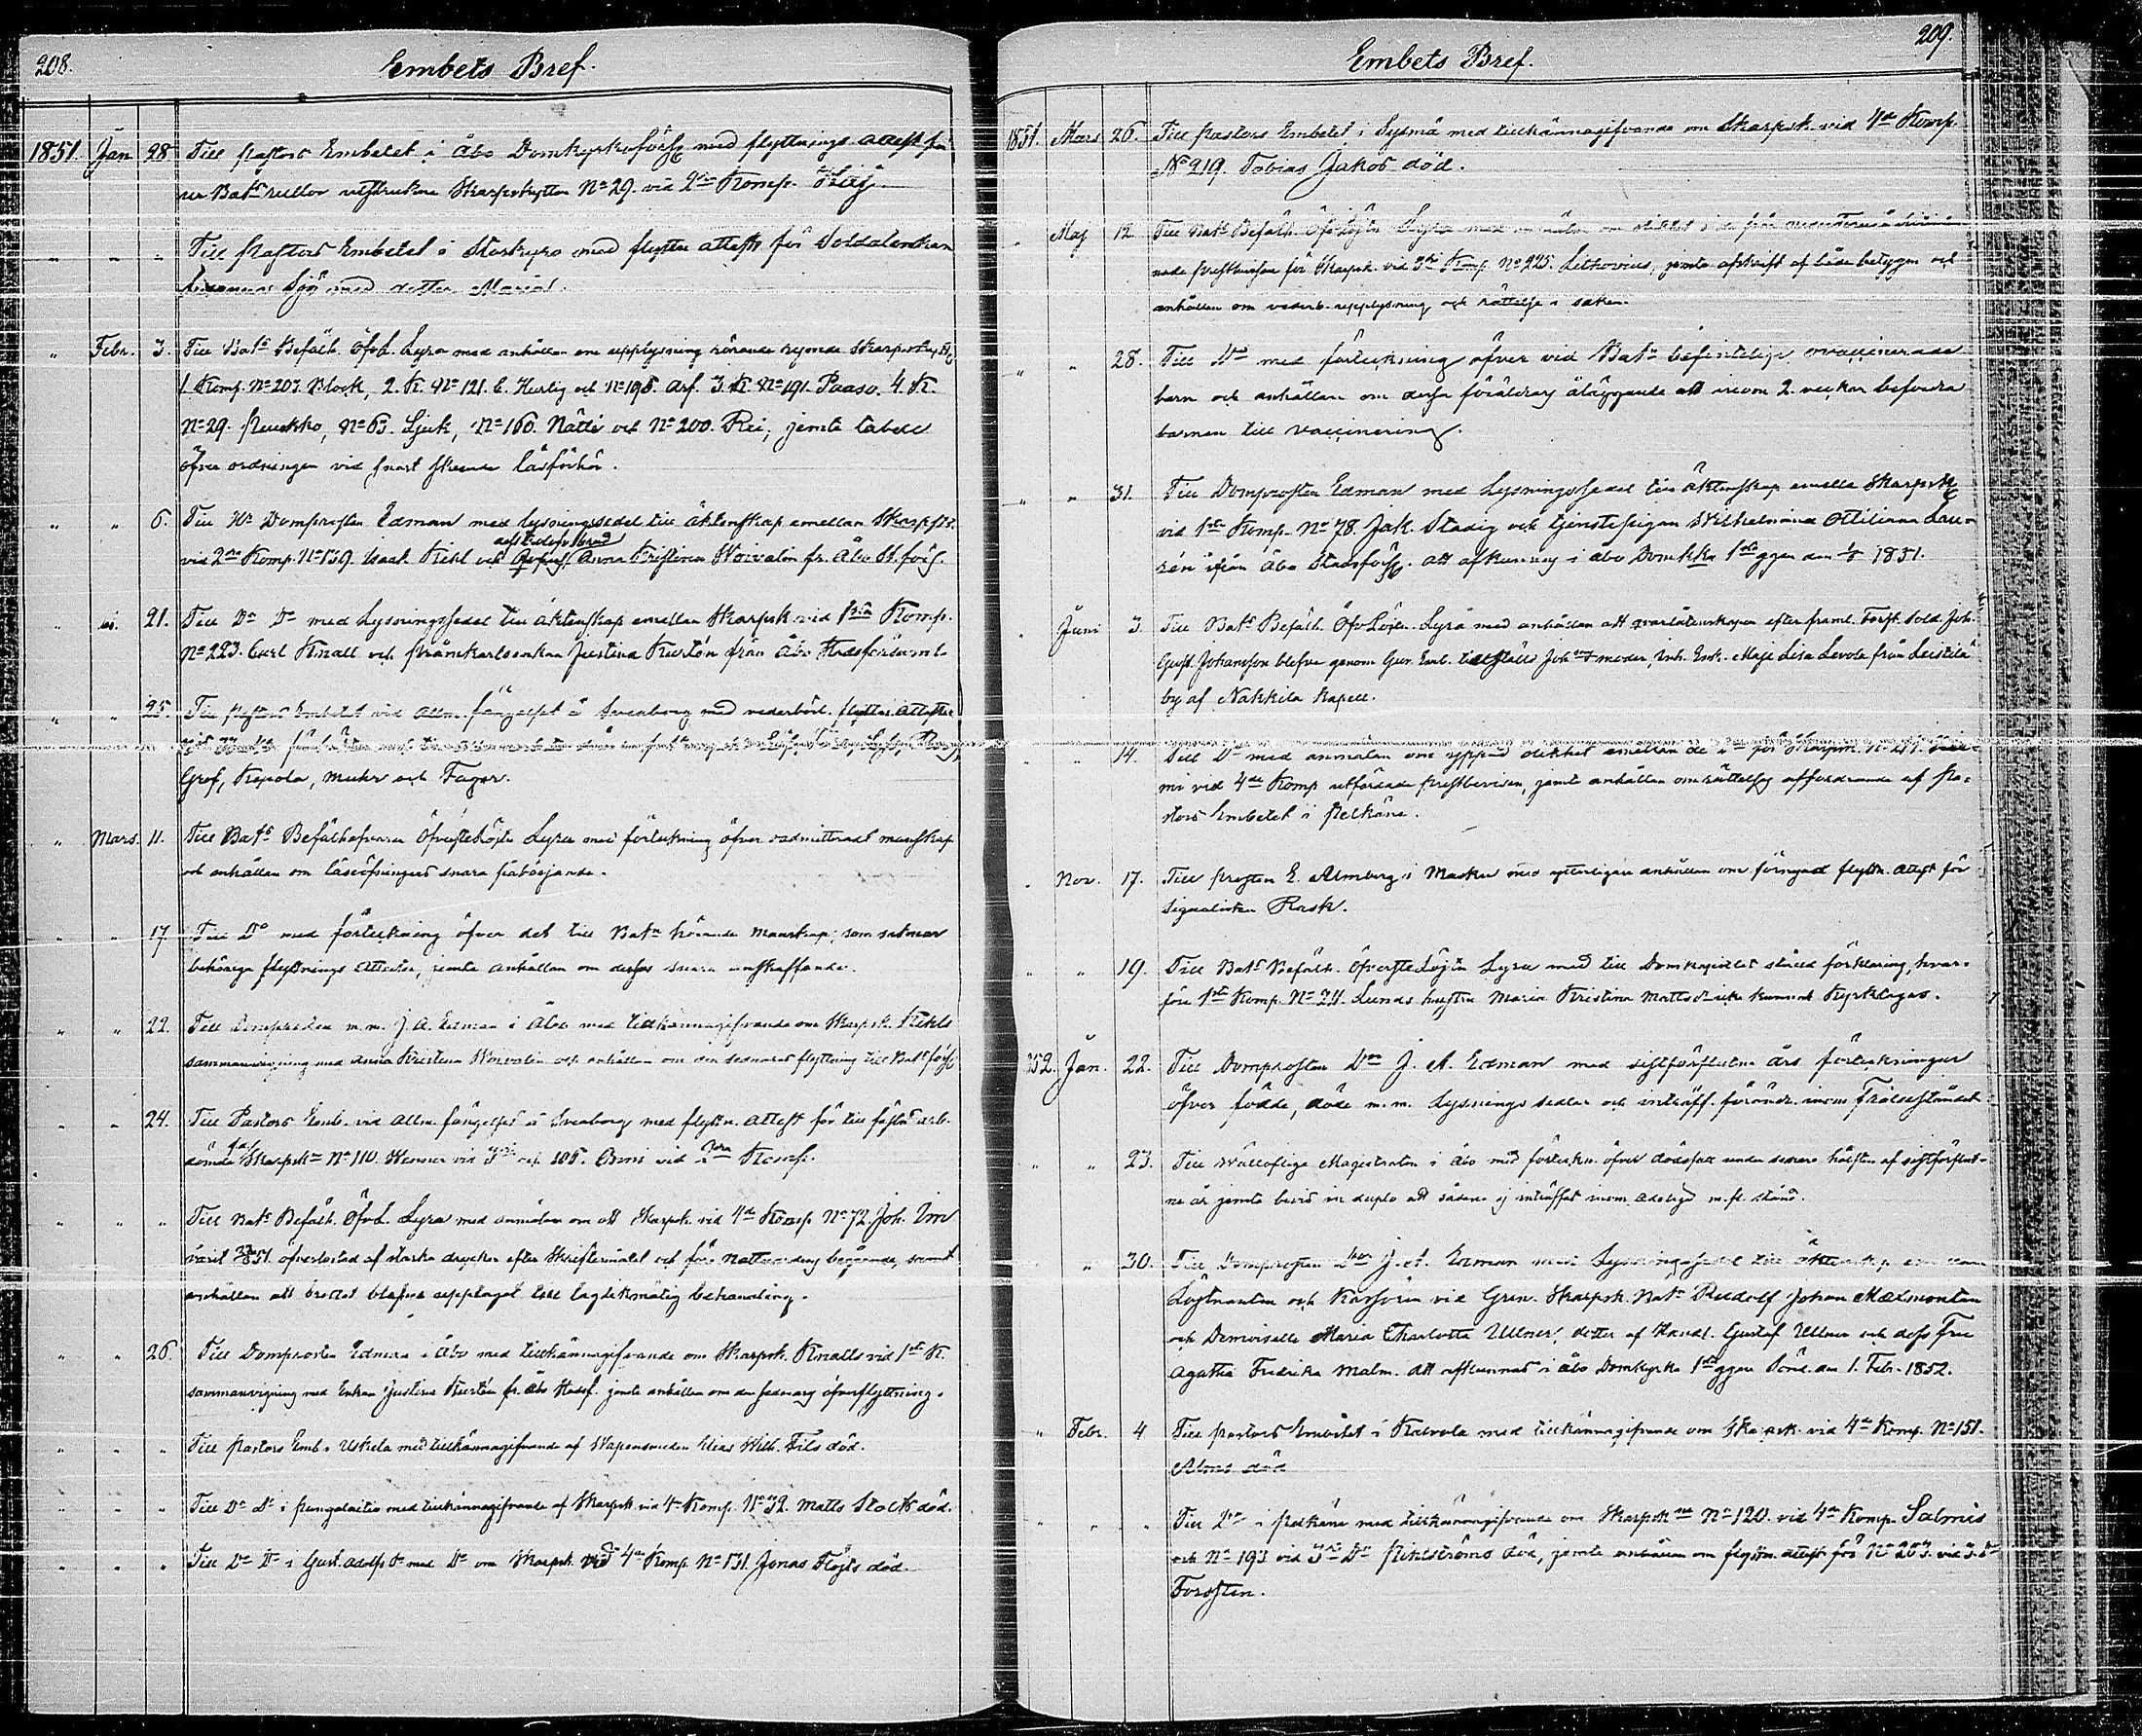 208.
Embets Bref.
1851. Jan. 28 Till Pastors Embetet i Åbo Domkyrkoförs: med flyttnings attest för
ur Bat:s rullor utstrukne Skarpskytten No 29. vid 2:dra Komp.
" " " Till Pastors Embetet i Storkyro med flyttn attest för Soldatenkan
Sjö med dotter Maria.
" Febr. 3. Till Bat:s Befälh. Öfv.L. Lyra med anhållan om upplysning rörande Skarpsk.
1. Komp. No 207. Block, 2. K. No 121. C. Hurtig och No 198. Arf. 3. K. No 191. Paaso. 4. K.
No 29. Puukko, No 63. Ljuk, No 160. Nätti och No 200. Rei, jemte tabell
öfver ordningen vid snart skeende läsförhör.
" " 6. Till Hr Domprosten Edman med lysningssedel till äktenskap emellan Skarpsk.
vid 2:dra Komp. No 139. Isaak Kihl och Anna Kristina Woivalin fr. Åbo St. förs.
" " 21. Till Do Do med Lysningssedel till äktenskap emellan Skarpsk. vid 1:sta Komp.
No 223. Carl Knall och Justina Kustén från Åbo Stadsförsaml.
" " 25. Till Pastors Embetet vid Allm. fängelset å Sveaborg med vederbörl. flyttn. Attester
Grof, Kepola, Muhr och Fager.
" Mars. 11. Till Bat:s Befälhafvaren Öfverstelöjtn Lyra med förteckning öfver oadmitteradt manskap
och anhållan om läseöfningens snara påbörjande.
" " 17. Till Do med förteckning öfver det till Bat:n hörande Manskap, som saknar
behöriga flyttnings Attester, jemte anhållan om dessas snara anskaffande.
" " 22. Till Domprosten m.m. J. A. Edman i Åbo med tillkännagifvande om Skarpsk. Kihls
sammanvigning med Anna Kristina Woivalin och anhållan om den sednares flyttning till Bat:s förs:
" " 24. Till Pastors Emb. vid Allm. fängelset å Sveaborg med flyttn. attest för till fästn. arb.
dömda f.d. Skarpsk:ne No 110. Wenner vid 3:dje och 105. vid 2:dra Komp.
" " " Till Bat:s Befälh. Öfv.L. Lyra med anmälan om att Skarpsk. vid 4:de Komp. No 72. Joh. Im
varit öfverlastad af starka drycker efter Skriftermålet och före Nattvardens begående, samt
anhållan att brottet blefve upptaget till laglikmätig behandling.
" " 26. Till Domprosten Edman i Åbo med tillkännagifvande om Skarpsk. Knalls vid 1:sta K.
sammanvigning med Enkan Justina Kustén fr. Åbo Stadsf. jemte anhållan om den sednares öfverflyttning.
" " " Till Pastors Emb. i Uskela med tillkännagifvande af Wapensmeden Elias Wilh. Fils död.
" " " Till Do Do i Pungalaitio med tillkännagifvande af Skarpsk. vid 4:de Komp. No 32. Matts Stocks död.
" " " Till Do Do i Gust. Adolfs med Do om Skarpsk. vid 4:de Komp. No 131. Jonas Flöjts död.
209.
Embets Bref.
1851. Mars 26. Till Pastors Embetet i Sysmä med tillkännagifvande om Skarpsk. vid 4:de Komp.
No 219. Tobias Jakos död.
" Maj 12 Till Bat:s Befälh. Öfv.Löjtn Lyra med anmälan om
prestbevisen för Skarpsk. vid 3:dje Komp. No 225. Lithovius, jemte afskrift af både betygen och
anhållan om vederb. upplysning och rättelse i saken.
" " 28. Till Do med förteckning öfver vid Bat:n befintelige ovaccinerade
barn och anhållan om dessa föräldrars åläggande att inom 2. veckor befordra
barnen till vaccinering.
" " 31. Till Domprosten Edman med Lysningssedel till Äktenskap emellan Skarpsk
vid 1:sta Komp. No 78. Jak. Stadig och tjenstepigan Wilhelmina Ottiliana Lau-
rén ifrån Åbo Stadsförs. att afkunnas i Åbo Domk:ka 1:sta ggen den 1/6 1851.
" Juni 3. Till Bat:s Befälh. Öfv.Löjtn. Lyra med anhållan att qvarlåtenskapen efter framl. Sold. Joh.
Gust. Johansson blefve genom Guv. Emb. tillställd Joh:ns moder, Enk. Maja Lisa Levola från Leistilä
by af Nakkila Kapell.
" " 14. Till Do med anmälan om yppad olikhet emellan de för Skarpsk.
vid 4:de Komp utfärdade prestbevisen, jemte anhållan om rättelses affordrande af Pa-
stors Embetet i Pelkäne.
" Nov. 17. Till Prosten E. Almberg i Masku med ytterligare anhållan om förnyad flyttn. attest för
Signalisten Rask.
" " 19. Till Bat:s Befälh. Öfverstelöjtn Lyra med till Domkapitlet ställd förklaring, hvar-
före 1:sta Komp. No 24. Lunds hustru Maria Kristina Mattsd:r icke kunnat Kyrktagas.
1852. Jan. 22. Till Domprosten D:r J. A. Edman med sistförflutne års förteckningar
öfver födde, döde m.m. Lysnings sedlar och inträff. förändr. inom Frälseståndet.
" " 23. Till Wällofliga Magistraten i Åbo med förteckn. öfver dödsfall under sednare hälften af sistförflut-
ne år jemte bevis in duplo att sådane ej inträffat inom Adeliga m.fl. stånd.
" " 30. Till Domprosten D:r J. A. Edman med Lysningssedel till äktenskap emellan
Löjtnanten och Kassören vid Gren. Skarpsk. Bat:n Rudolf Johan Malmontan
och Demoiselle Maria Charlotta Ullner, dotter af Handl. Gustaf Ullner och dess Fru
Agatha Fredrika Malm. att afkunnas i Åbo Domkyrka 1:sta ggen Sönd. den 1. Febr. 1852.
" Febr. 4 Till Pastors Embetet i Kalvola med tillkännagifvande om Skarpsk. vid 4:de Komp. No 151.
död
" " " Till Do i Pelkäne med tillkännagifvande om Skarpsk:ne No 120. vid 4:de Komp. Salmis
och No 193 vid 3:dje Do Pihlströms död, jemte anhållan om flyttn. attest för No 203. vid 3. Do
Forssten.